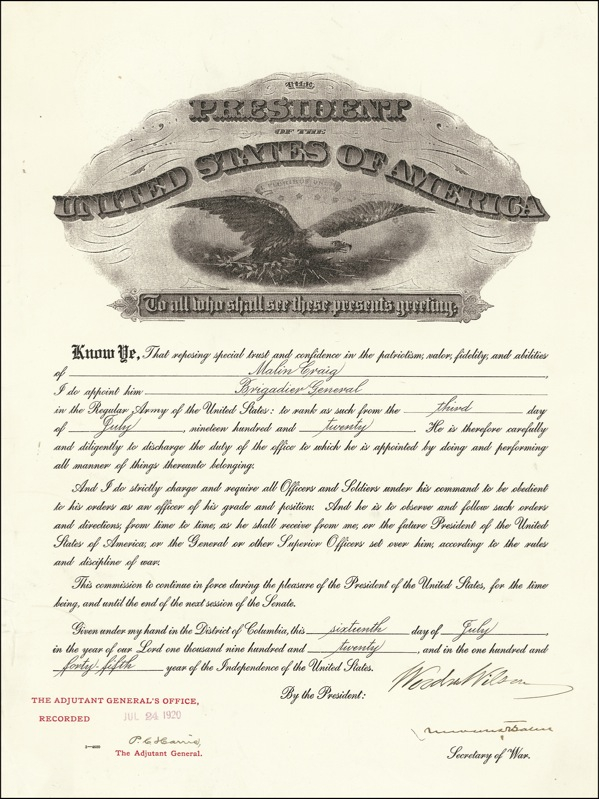 THE
PRESIDENT
OF THE
UNITED STATES OF AMERICA
E PLURIBUS UNUM
To all who shall see these presents greeting.
Know Ye, That reposing special trust and confidence in the patriotism, valor, fidelity, and abilities
of Malin Craig,
I do appoint him Brigadier General
in the Regular Army of the United States: to rank as such from the third day
of July, nineteen hundred and twenty. He is therefore carefully
and diligently to discharge the duty of the office to which he is appointed by doing and performing
all manner of things thereunto belonging.
And I do strictly charge and require all Officers and Soldiers under his command to be obedient
to his orders as an officer of his grade and position. And he is to observe and follow such orders
and directions, from time to time, as he shall receive from me, or the future President of the United
States of America, or the General or other Superior Officers set over him, according to the rules
and discipline of war.
This commission to continue in force during the pleasure of the President of the United States, for the time
being, and until the end of the next session of the Senate.
Given under my hand in the District of Columbia, this sixteenth day of July,
in the year of our Lord one thousand nine hundred and twenty, and in the one hundred and
forty-fifth year of the Independence of the United States.
By the President: Woodrow Wilson
THE ADJUTANT GENERAL'S OFFICE,
RECORDED JUL 24 1920
P. C. Harris,
The Adjutant General.
Newton D. Baker
Secretary of War.